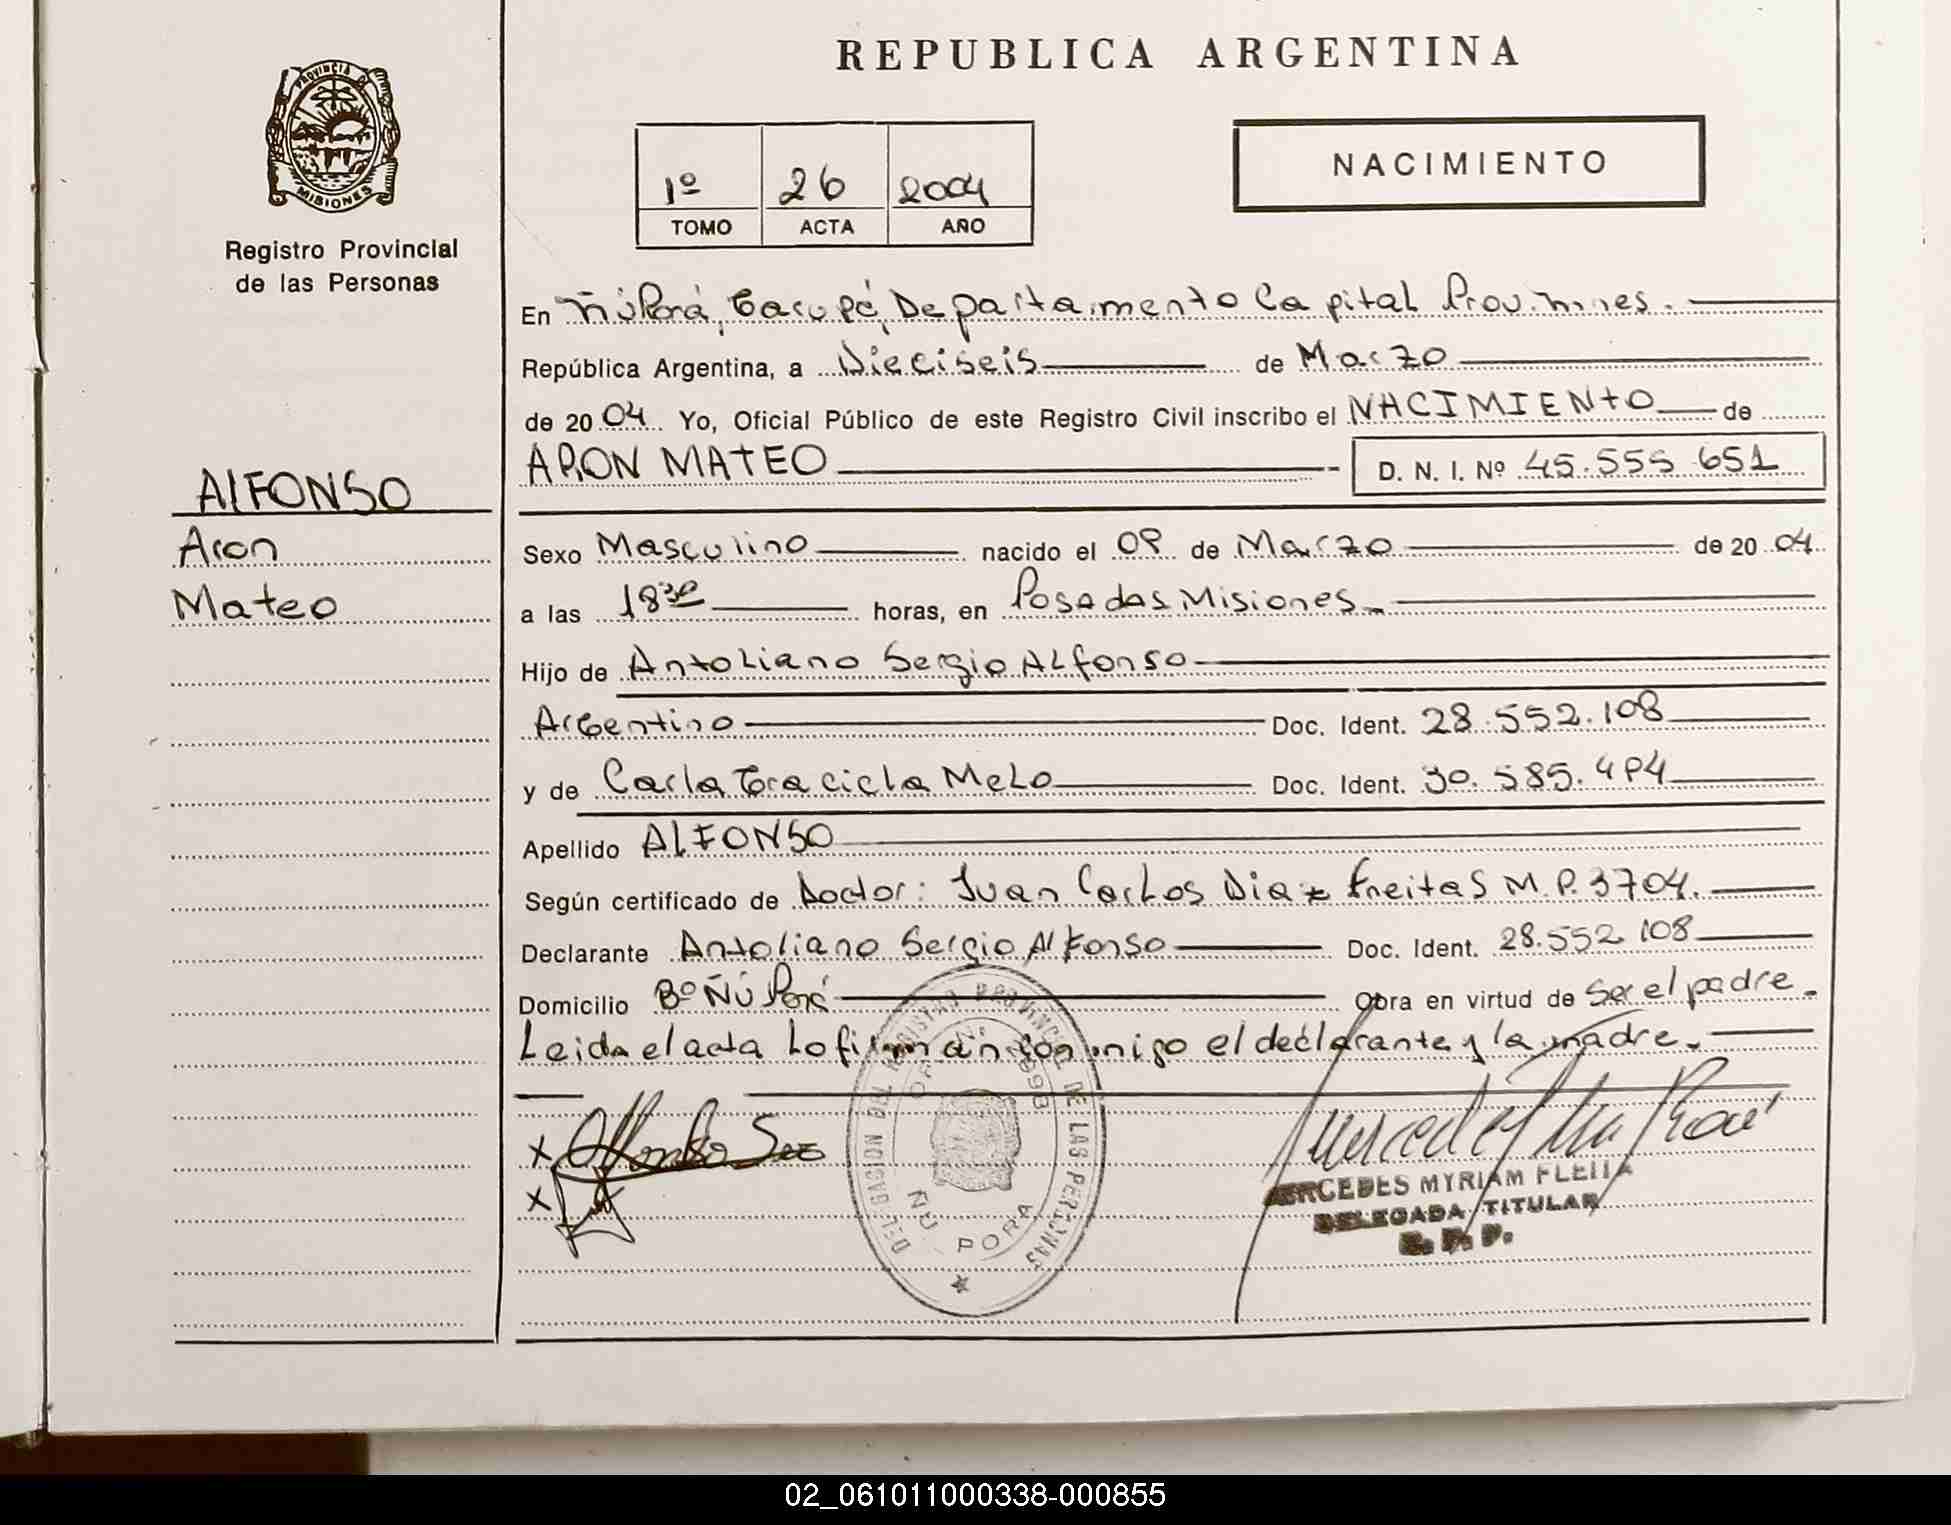 REPUBLICA ARGENTINA
PROVINCIA DE
MISIONES
Registro Provincial
de las Personas
1º 26 2004
TOMO ACTA AÑO
NACIMIENTO
En Ñú Porá, Garupé, Departamento Capital Prov. mnes.
República Argentina, a Dieciseis de Marzo
de 2004 Yo, Oficial Público de este Registro Civil inscribo el NACIMIENTO de
ARON MATEO D. N. I. Nº 45.555 651
ALFONSO
Aron
Mateo
Sexo Masculino nacido el 09 de Marzo de 2004
a las 18³⁰ horas, en Posadas Misiones
Hijo de Antoliano Sergio Alfonso
Argentino Doc. Ident. 28.552.108
y de Carla Graciela Melo Doc. Ident. 30.585.494
Apellido ALFONSO
Según certificado de Doctor: Juan Carlos Diaz Freitas M.P. 3704.
Declarante Antoliano Sergio Alfonso Doc. Ident. 28.552 108
Domicilio Bº Ñú Porá Obra en virtud de Ser el padre.
Leida el acta Lo firman con migo el declarante y la madre.
DELEGACION DEL REGISTRO PROVINCIAL DE LAS PERSONAS
ÑU PORA
x Alfonso Ser
x
MERCEDES MYRIAM FLEITA
DELEGADA TITULAR
R. P. P.
02_061011000338-000855